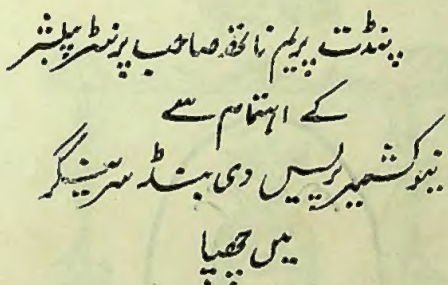 پنڈت پریم ناتھ صاحب پرنٹر پبلشر
کے اہتمام سے
نیو کشمیر پریس دی بنڈ سرینگر
میں چھپا